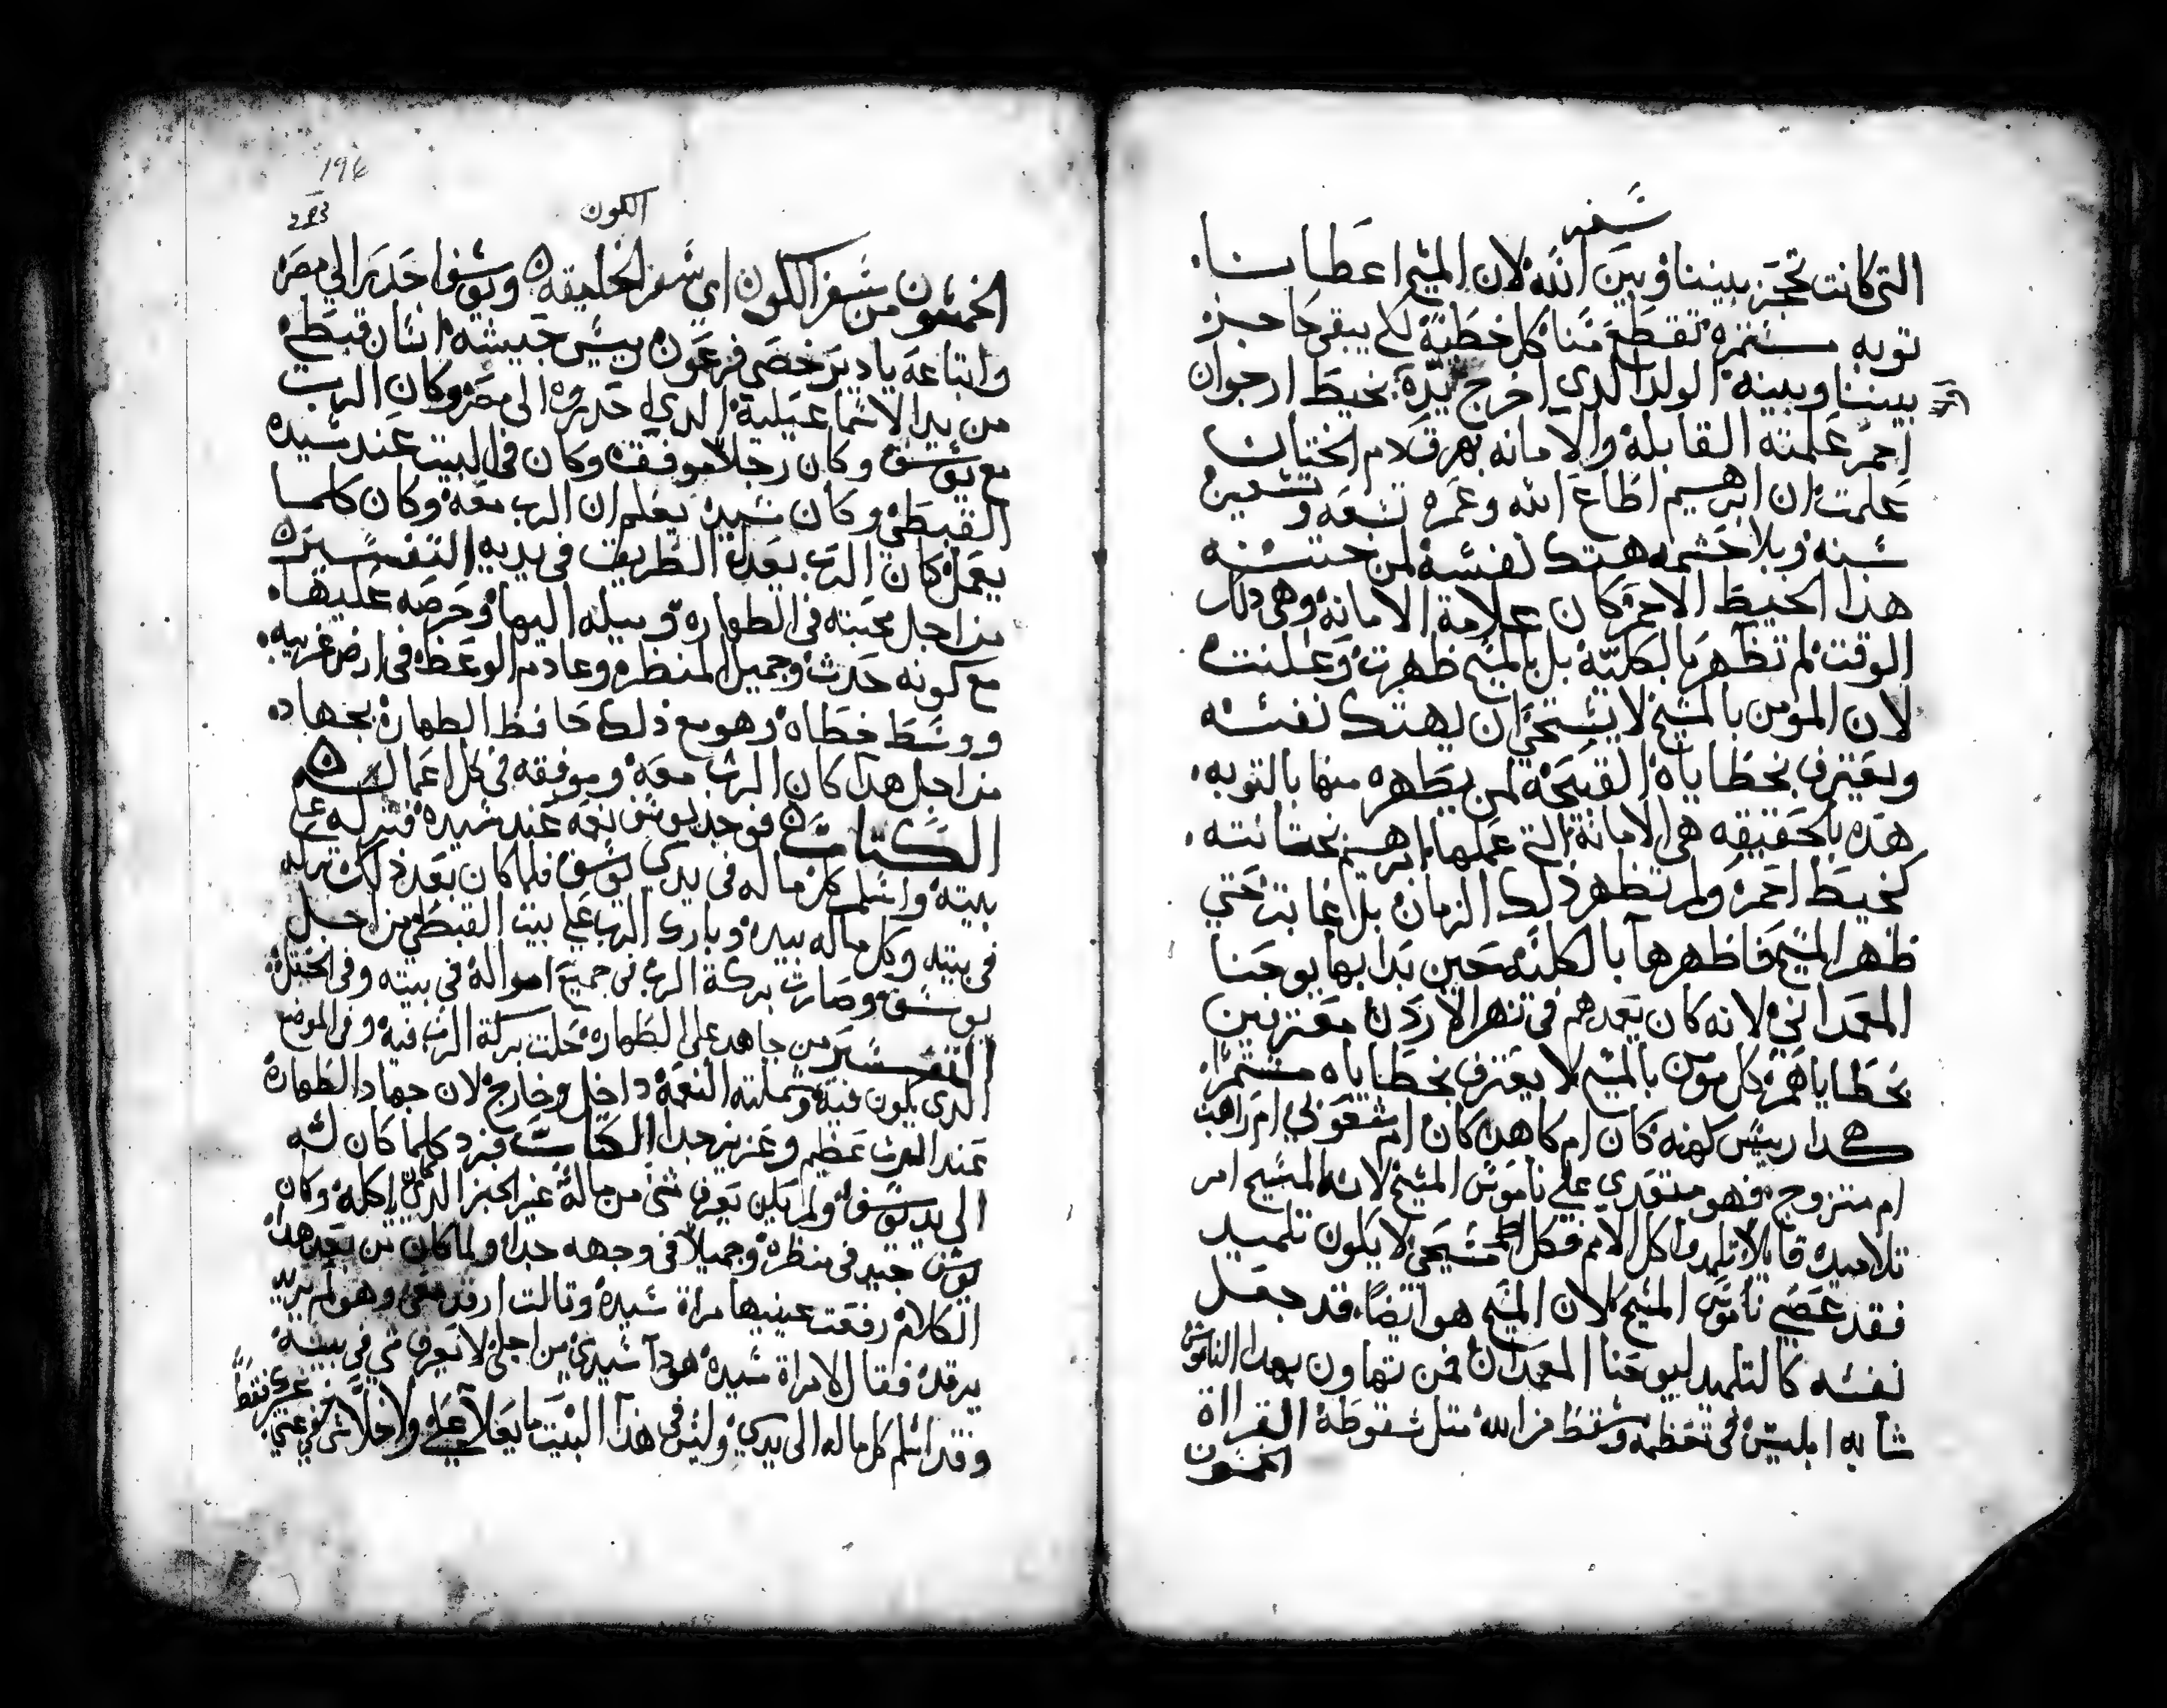 سفر
التى كانت تحجز بيننا وبين الله لان المسيح اعطانا
توبه مستمره تقطع منا كل خطية لكى يبقى حاجز
بيننا وبينه الولد الدي اخرج يده بخيط ارجوان
احمر علمته القابله والامانه بهر قدام الختان
علمت ان ابرهيم اطاع الله وعمره تسعه وتسعين
سنه وبلا حشمه هتك نفسه لمن ختنه
هدا الخيط الاحمر كان علامة الامانه وهى دلك
الوقت لم تظهر بالكليه بل بالمسيح ظهرت وعلنت
لان المومن بالمسيح لا يستحى ان يهتك نفسه
ويعترف بخطاياه القبيحه لمن يطهره منها بالتوبه
هده بالحقيقه هى الامانة التي عملها ابرهيم بختانته
كخيط احمر ولم تظهر ذلك الزمان بل غابت حتي
ظهر المسيح فاظهرها بالكليه حين بدا بها يوحنا
المعمدانى لانه كان يعمدهم في نهر الاردن معترفين
بخطاياهم كل مومن بالمسيح لا يعترف بخطاياه مستمر
هكدا رييس كهنه كان ام كاهن كان ام شعوبي ام راهب
ام متزوج فهو متعدي علي ناموس المسيح لان المسيح امر
تلاميده قايلا تلمدوا كل الامم فكل مسيحى لا يكون تلميد
فقد عصي ناموس المسيح لان المسيح هو ايضا قد جعل
نفسه كالتلميد ليوحنا المعمدان فمن تهاون بهدا الناموس
شابه ابليس في تعظمه وسقط من الله متل سقوطه القراة
الخمسون
الكون
الخمسون من سفر الكون اي سفر الخليقه ويوسف احدر الي مصر
وابتاعه يادير خصي فرعون رييس جيشه انسان قبطي
من يد الاسماعيلية الدي احدروه الى مصر وكان الرب
مع يوسف وكان رجلا موفقا وكان في البيت عند سيده
القبطى وكان سيده يعلم ان الرب معه وكان كلما
يعمل كان الرب يعدل الطريق في يديه التفسير
من اجل محبته في الطهاره وميله اليها وحرصه عليها
مع كونه حدث وجميل المنظر وعادم الوعظ في ارض غريبه
ووسط خطاه وهو مع ذلك حافظ الطهارة بجهاد
من اجل هدا كان الرب معه وموفقه في كل اعماله
الكتاب فوجد يوسف نعمه عند سيده فتركه علي
بيته واسلم كل ماله في يدي يوسف فلما كان بعد ذلك تركه
في بيته وكل ماله بيده وبارك الرب علي بيت القبطي من اجل
يوسف وصارت بركة الرب في جميع امواله في بيته وفي الحقل
التفسير من جاهد على الطهاره حلت بركة الرب فيه وفي الموضع
الدي يكون فيه وشملته النعمه داخل وخارج لان جهاد الطهارة
عند الرب عظيم وعزيز جدا الكتاب فرد كلما كان له
الى يد يوسف ولم يكن يعرف شى من ماله غير الخبز الدي ياكله وكان
يوسف جيد في منظره وجميلا في وجهه جدا ولما كان من بعد هدا
الكلام رفعت عينيها مراة سيده وقالت ارقد معي وهو لم يريد
يرقد فقال لامراة سيده هودا سيدي من اجلي لا يعرف شي في بيته
وقد اسلم كل ماله الى يدي وليس في هذا البيت ما يغلا علي ولا اخلا شي عني
غيرك فقط